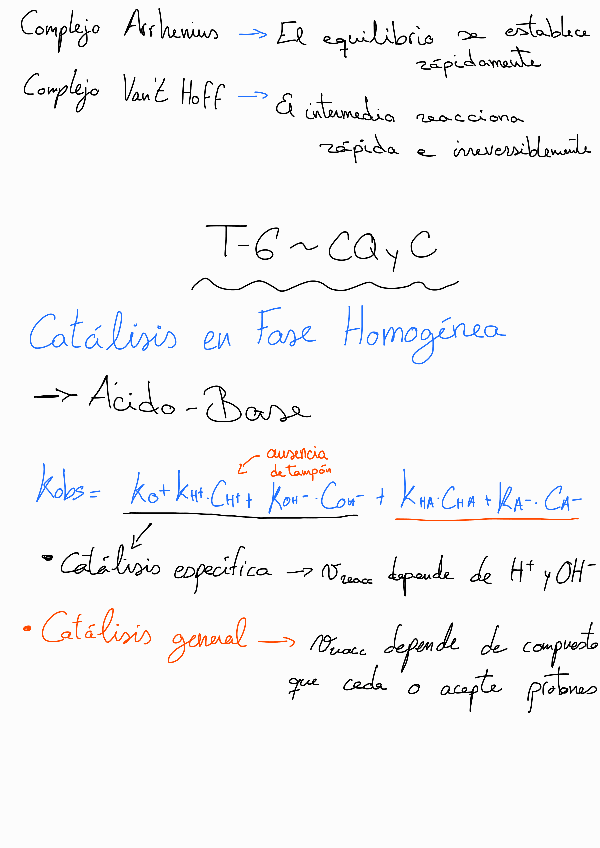 Complejo Arrhenius → El equilibrio se establece
rápidamente
Complejo Van't Hoff → El intermedia reacciona
rápida e irreversiblemente
T-6 ~ CQ y C
Catálisis en Fase Homogénea
→ Ácido-Base
ausencia
de tampón
kobs = k0 + kH+·CH+ + kOH-·COH- + kHA·CHA + kA-·CA-
• Catálisis específica → vreacc depende de H+ y OH-
• Catálisis general → vreacc depende de compuesto
que ceda o acepte protones